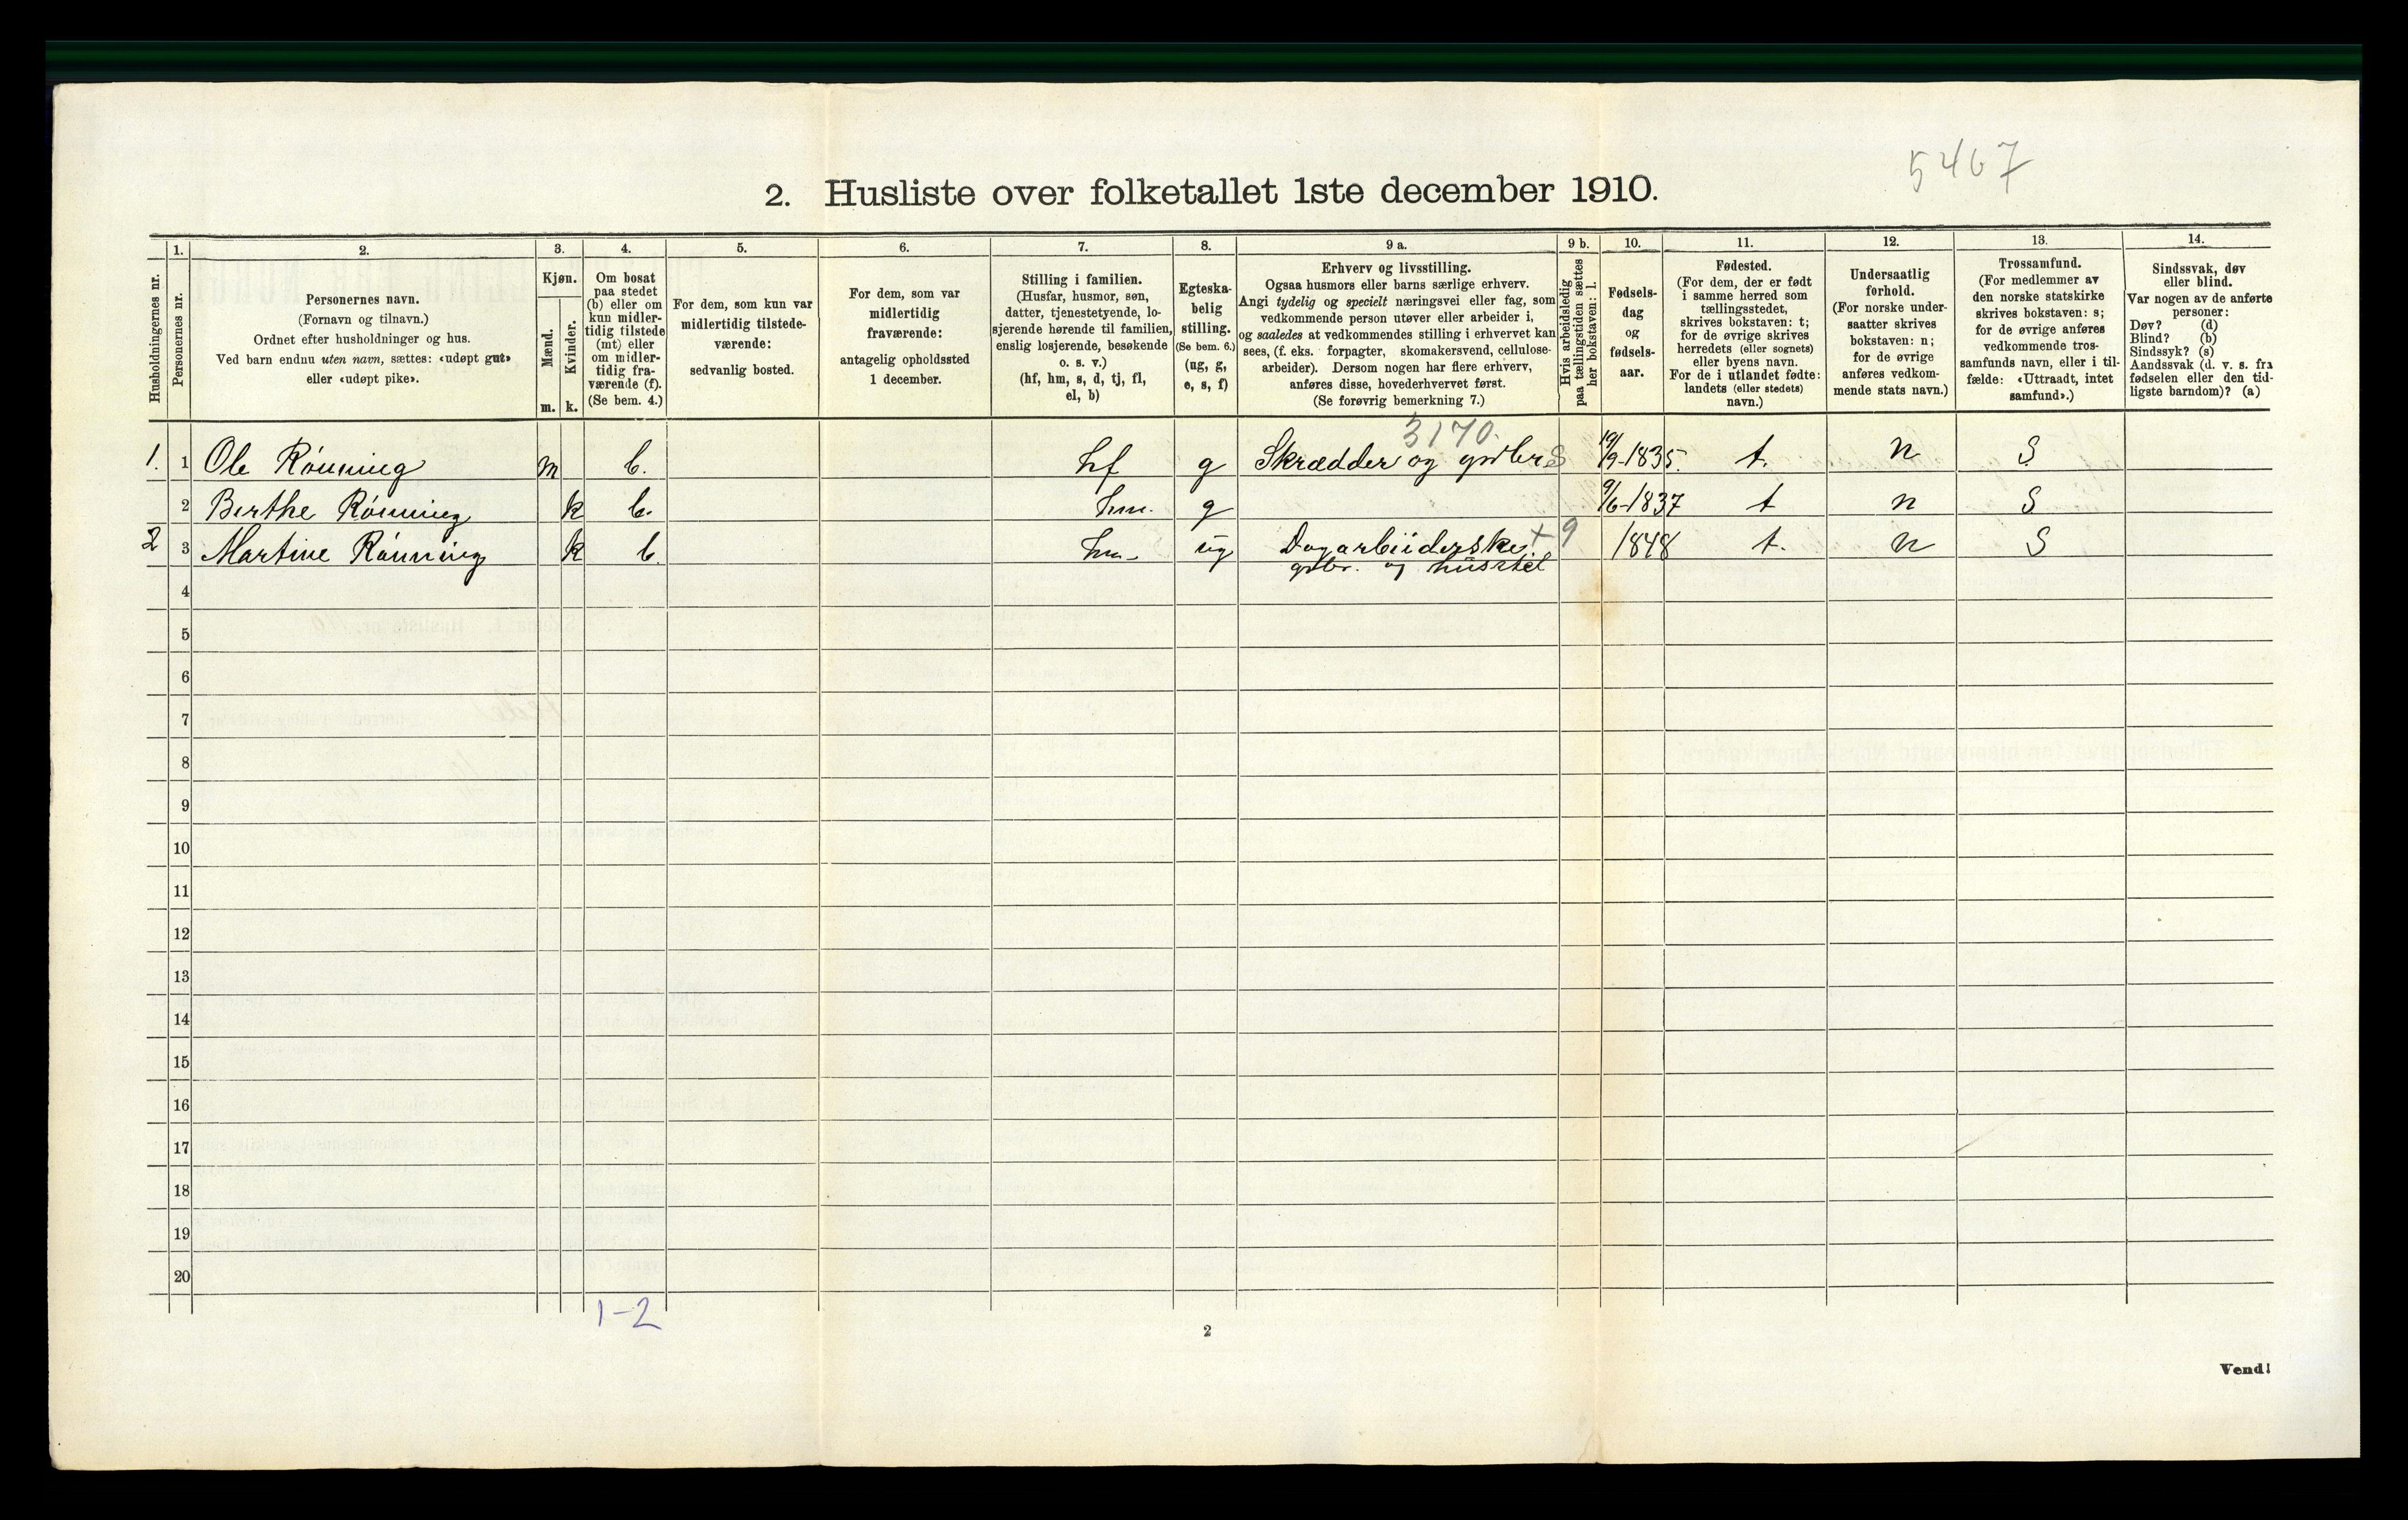 5467
2. Husliste over folketallet 1ste december 1910.
Husholdningernes nr.
1.
Personernes nr.
2.
Personernes navn.
(Fornavn og tilnavn.)
Ordnet efter husholdninger og hus.
Ved barn endnu uten navn, sættes: «udøpt gut»
eller «udøpt pike».
3.
Kjøn.
Mænd.
Kvinder.
m. k.
4.
Om bosat
paa stedet
(b) eller om
kun midler-
tidig tilstede
(mt) eller
om midler-
tidig fra-
værende (f).
(Se bem. 4.)
5.
For dem, som kun var
midlertidig tilstede-
værende:
sedvanlig bosted.
6.
For dem, som var
midlertidig
fraværende:
antagelig opholdssted
1 december.
7.
Stilling i familien.
(Husfar, husmor, søn,
datter, tjenestetyende, lo-
sjerende hørende til familien,
enslig losjerende, besøkende
o. s. v.)
(hf, hm, s, d, tj, fl,
el, b)
8.
Egteska-
belig
stilling.
(Se bem. 6.)
(ug, g,
e, s, f)
9 a.
Erhverv og livsstilling.
Ogsaa husmors eller barns særlige erhverv.
Angi tydelig og specielt næringsvei eller fag, som
vedkommende person utøver eller arbeider i,
og saaledes at vedkommendes stilling i erhvervet kan
sees, (f. eks. forpagter, skomakersvend, cellulose-
arbeider). Dersom nogen har flere erhverv,
anføres disse, hovederhvervet først.
(Se forøvrig bemerkning 7.)
9 b.
Hvis arbeidsledig
paa tællingstiden sættes
her bokstaven: l.
10.
Fødsels-
dag
og
fødsels-
aar.
11.
Fødested.
(For dem, der er født
i samme herred som
tællingsstedet,
skrives bokstaven: t;
for de øvrige skrives
herredets (eller sognets)
eller byens navn.
For de i utlandet fødte:
landets (eller stedets)
navn.)
12.
Undersaatlig
forhold.
(For norske under-
saatter skrives
bokstaven: n;
for de øvrige
anføres vedkom-
mende stats navn.)
13.
Trossamfund.
(For medlemmer av
den norske statskirke
skrives bokstaven: s;
for de øvrige anføres
vedkommende tros-
samfunds navn, eller i til-
fælde: «Uttraadt, intet
samfund».)
14.
Sindssvak, døv
eller blind.
Var nogen av de anførte
personer:
Døv? (d)
Blind? (b)
Sindssyk? (s)
Aandssvak (d. v. s. fra
fødselen eller den tid-
ligste barndom)? (a)
3170.
1. 1 Ole Rönning m b. hf g Skrædder og grdbr S 19/9-1835. t. n S
2 Berthe Rönning k b. hm. g 9/6-1837 t n S
2 3 Martine Rönning k b. hm. ug Dagarbeiderske + 9 1848 t. n S
grbr. og husstel
4
5
6
7
8
9
10
11
12
13
14
15
16
17
18
19
20
1-2
2
Vend!